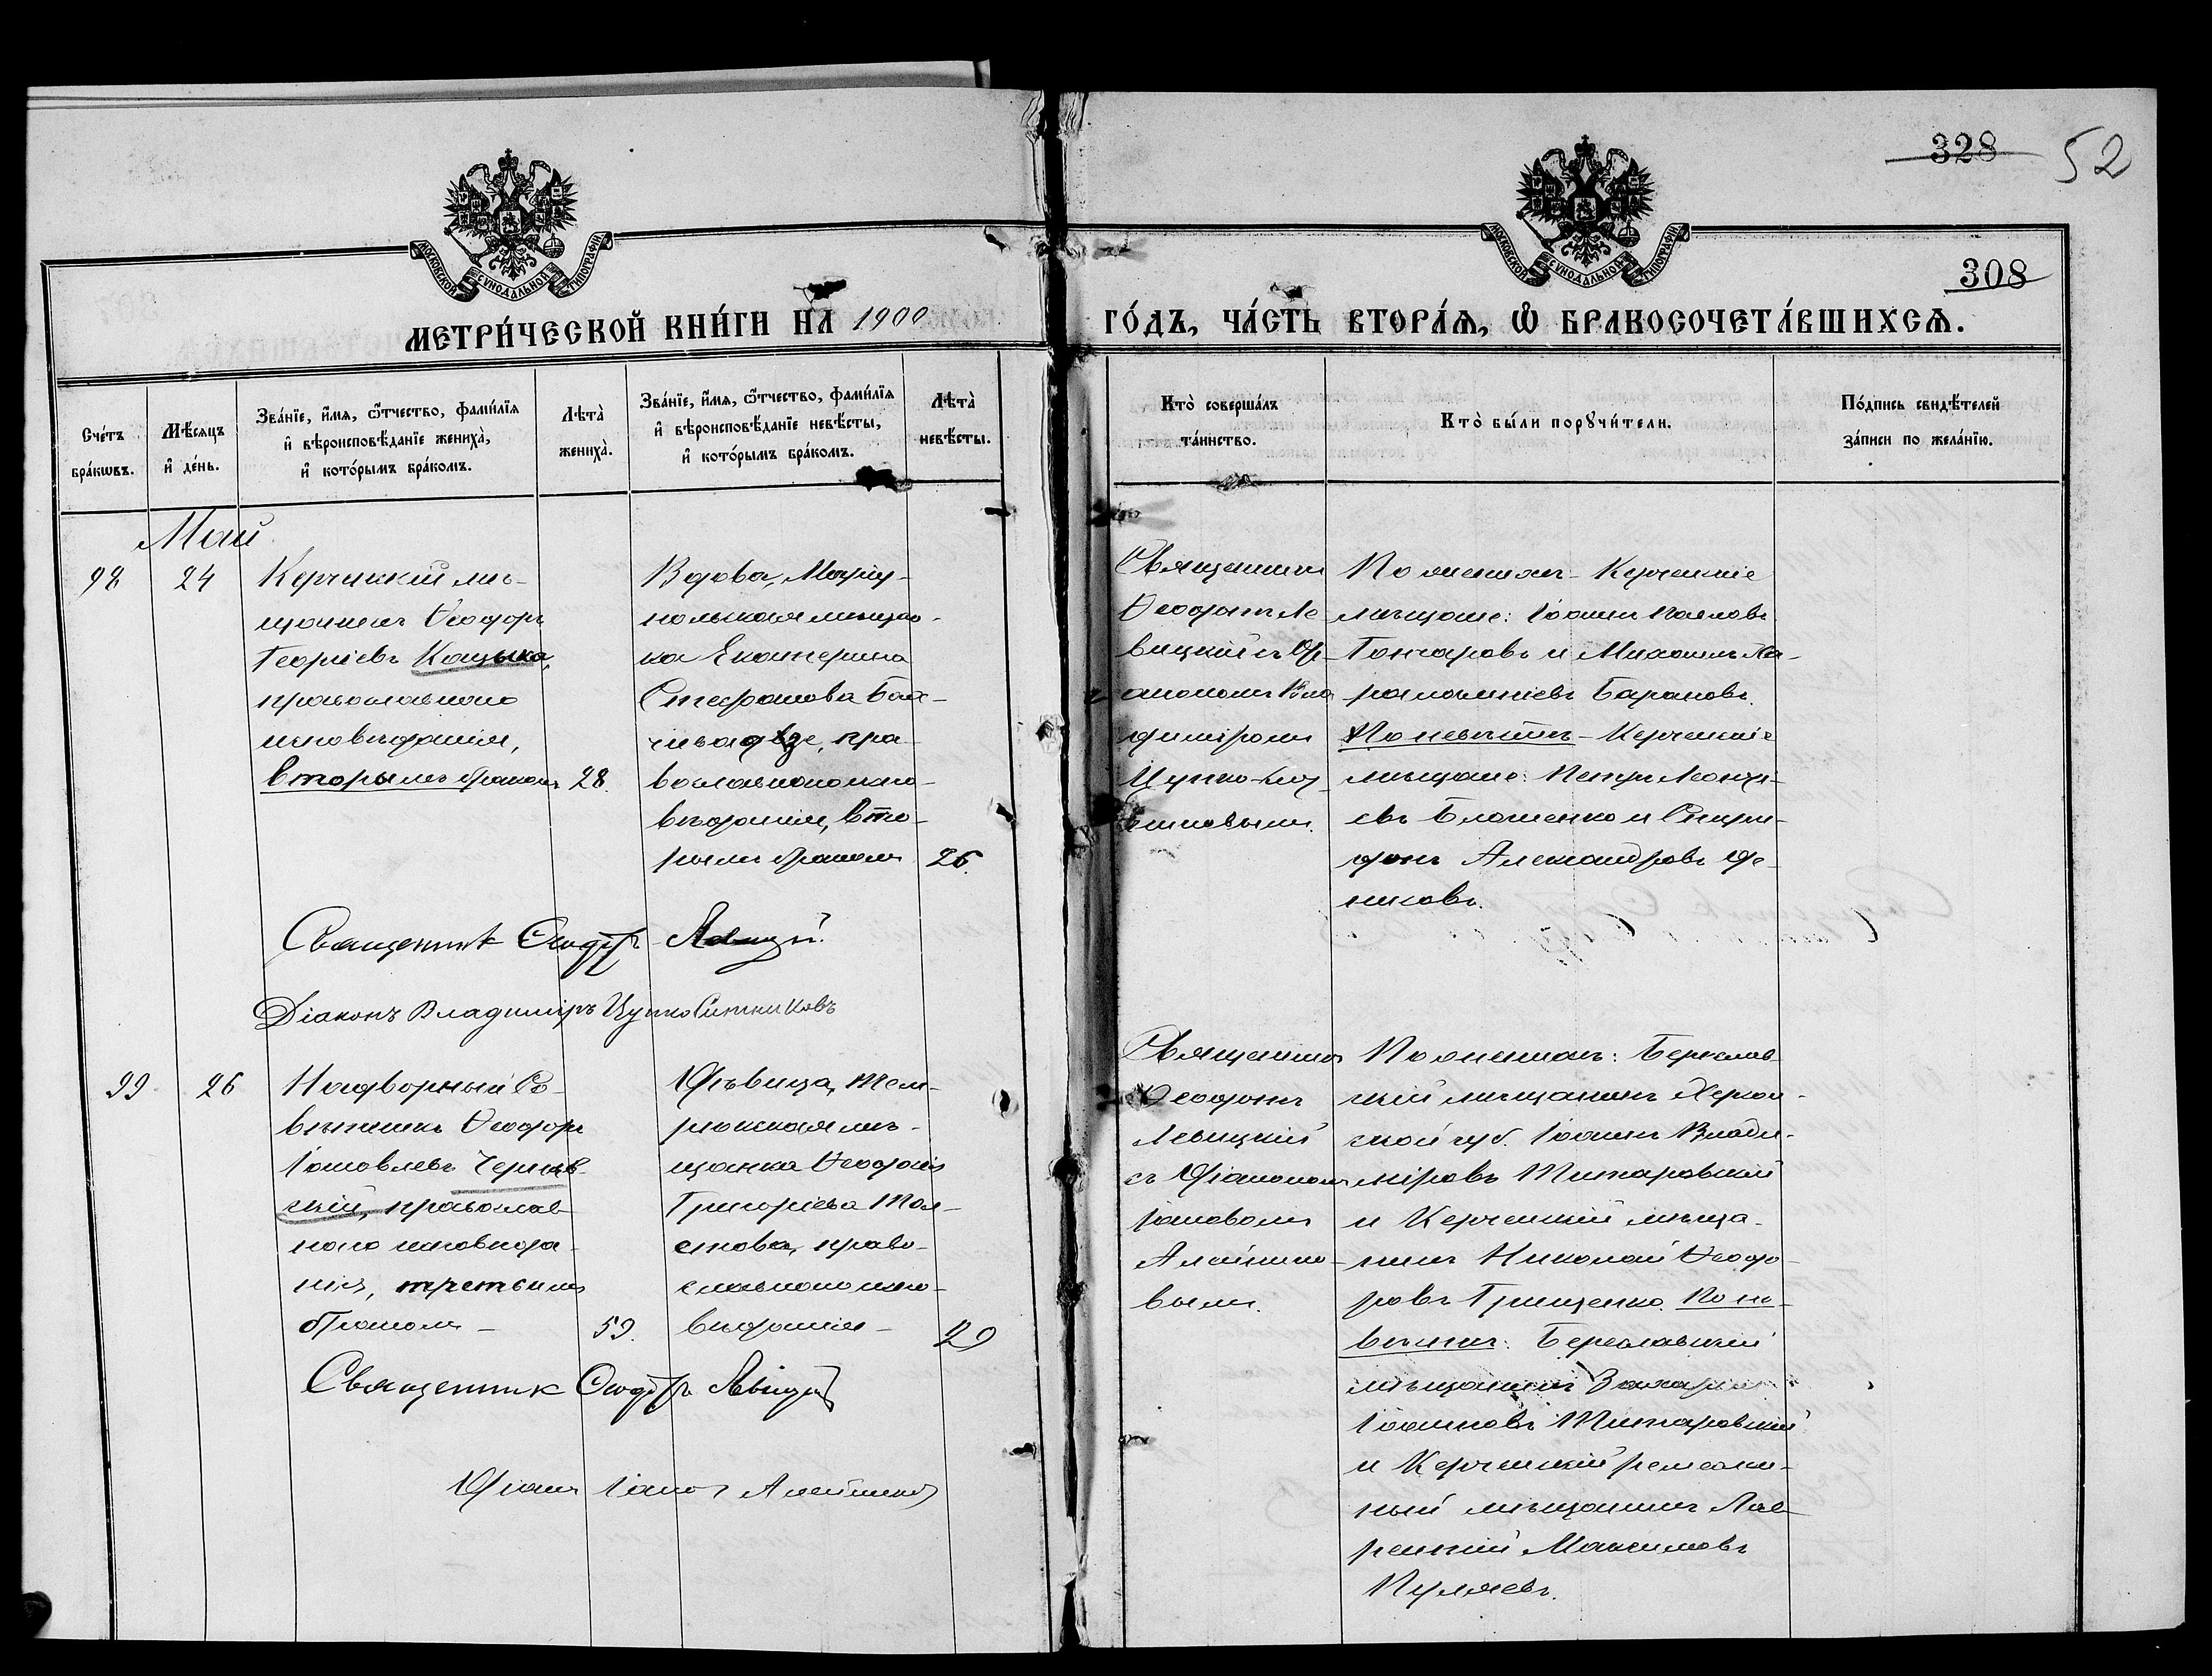 328
52
308
МОСКОВСКОЙ СѴНОДАЛЬНОЙ ТИПОГРАФІИ
МОСКОВСКОЙ СѴНОДАЛЬНОЙ ТИПОГРАФІИ
МЕТРИ́ЧЕСКОЙ КНИ́ГИ НА 1900
ГО́ДЪ, ЧА́СТЬ ВТОРА́Ѧ, Ѡ БРАКОСОЧЕТА́ВШИХСѦ.
Сче́тъ
бра́кѡвъ.
Мѣ́сяцъ
и҆ де́нь.
Зва́нїе, и҆́мѧ, ѻ҆́тчество, фами́лїѧ
и҆ вѣроисповѣ́данїе жениха̀,
и҆ кото́рымъ бра́комъ.
Лѣ́та̀
жениха̀.
Зва́нїе, и҆́мѧ, ѻ҆́тчество, фами́лїѧ
и҆ вѣроисповѣ́данїе невѣ́сты,
и҆ кото́рымъ бра́комъ.
Лѣ́та̀
невѣ́сты.
Кто̀ соверша́лъ
та́инство.
Кто̀ бы́ли порꙋчи́тели.
По́дпись свидѣ́телей
за́писи по жела́нїю.
Май
98
24
Керченскій мѣ-
щанинъ Ѳеодоръ
Георгіевъ
православнаго
исповѣданія,
вторымъ бракомъ
28.
Вдова, Маріу-
польская мѣщан-
ка Екатерина
Стефанова
пра-
вославнаго испо-
вѣданія, вто-
рымъ бракомъ
26.
Священникъ
Ѳеодоръ Ле
вицкій съ Ді-
акономъ Вла
диміромъ
Цупко-Сит
никовымъ.
По женихѣ - Керченскіе
мѣщане: Іоаннъ Павловъ
Гончаровъ и Михаилъ Ха-
рлампіевъ Барановъ.
По невѣстѣ - Керченскіе
мѣщане: Петръ Леонть-
евъ Блошенко и Спири-
донъ Александровъ Фе-
никовъ.
Священникъ Ѳеодоръ Левицкій.
Діаконъ Владиміръ Цупко Ситниковъ
99
26
Надворный Со-
вѣтникъ Ѳеодоръ
Іаковлевъ Черняв-
скій, православ-
наго исповѣда-
нія, третьимъ
бракомъ -
59.
Дѣвица, Тем-
рюкская мѣ-
щанка Ѳеодосія
Григоріева Тол-
стова, право-
славнаго испо-
вѣданія -
29
Священникъ
Ѳеодоръ
Левицкій
съ Діакономъ
Іаковомъ
Алейнико-
вымъ.
По женихѣ: Береслав
скій мѣщанинъ Херсон-
ской губ. Іоаннъ Влади-
міровъ Титаровскій
и Керченскій мѣща-
нинъ Николай Ѳеодо-
ровъ Грищенко. По не-
вѣстѣ: Береславскій
мѣщанинъ Захарій
Іоанновъ Титаровскій
и Керченскій ремеслен-
ный мѣщанинъ Лав-
рентій Максимовъ
Пуляевъ.
Священникъ Ѳеодоръ Левицкій
Діаконъ Іаковъ Алейниковъ